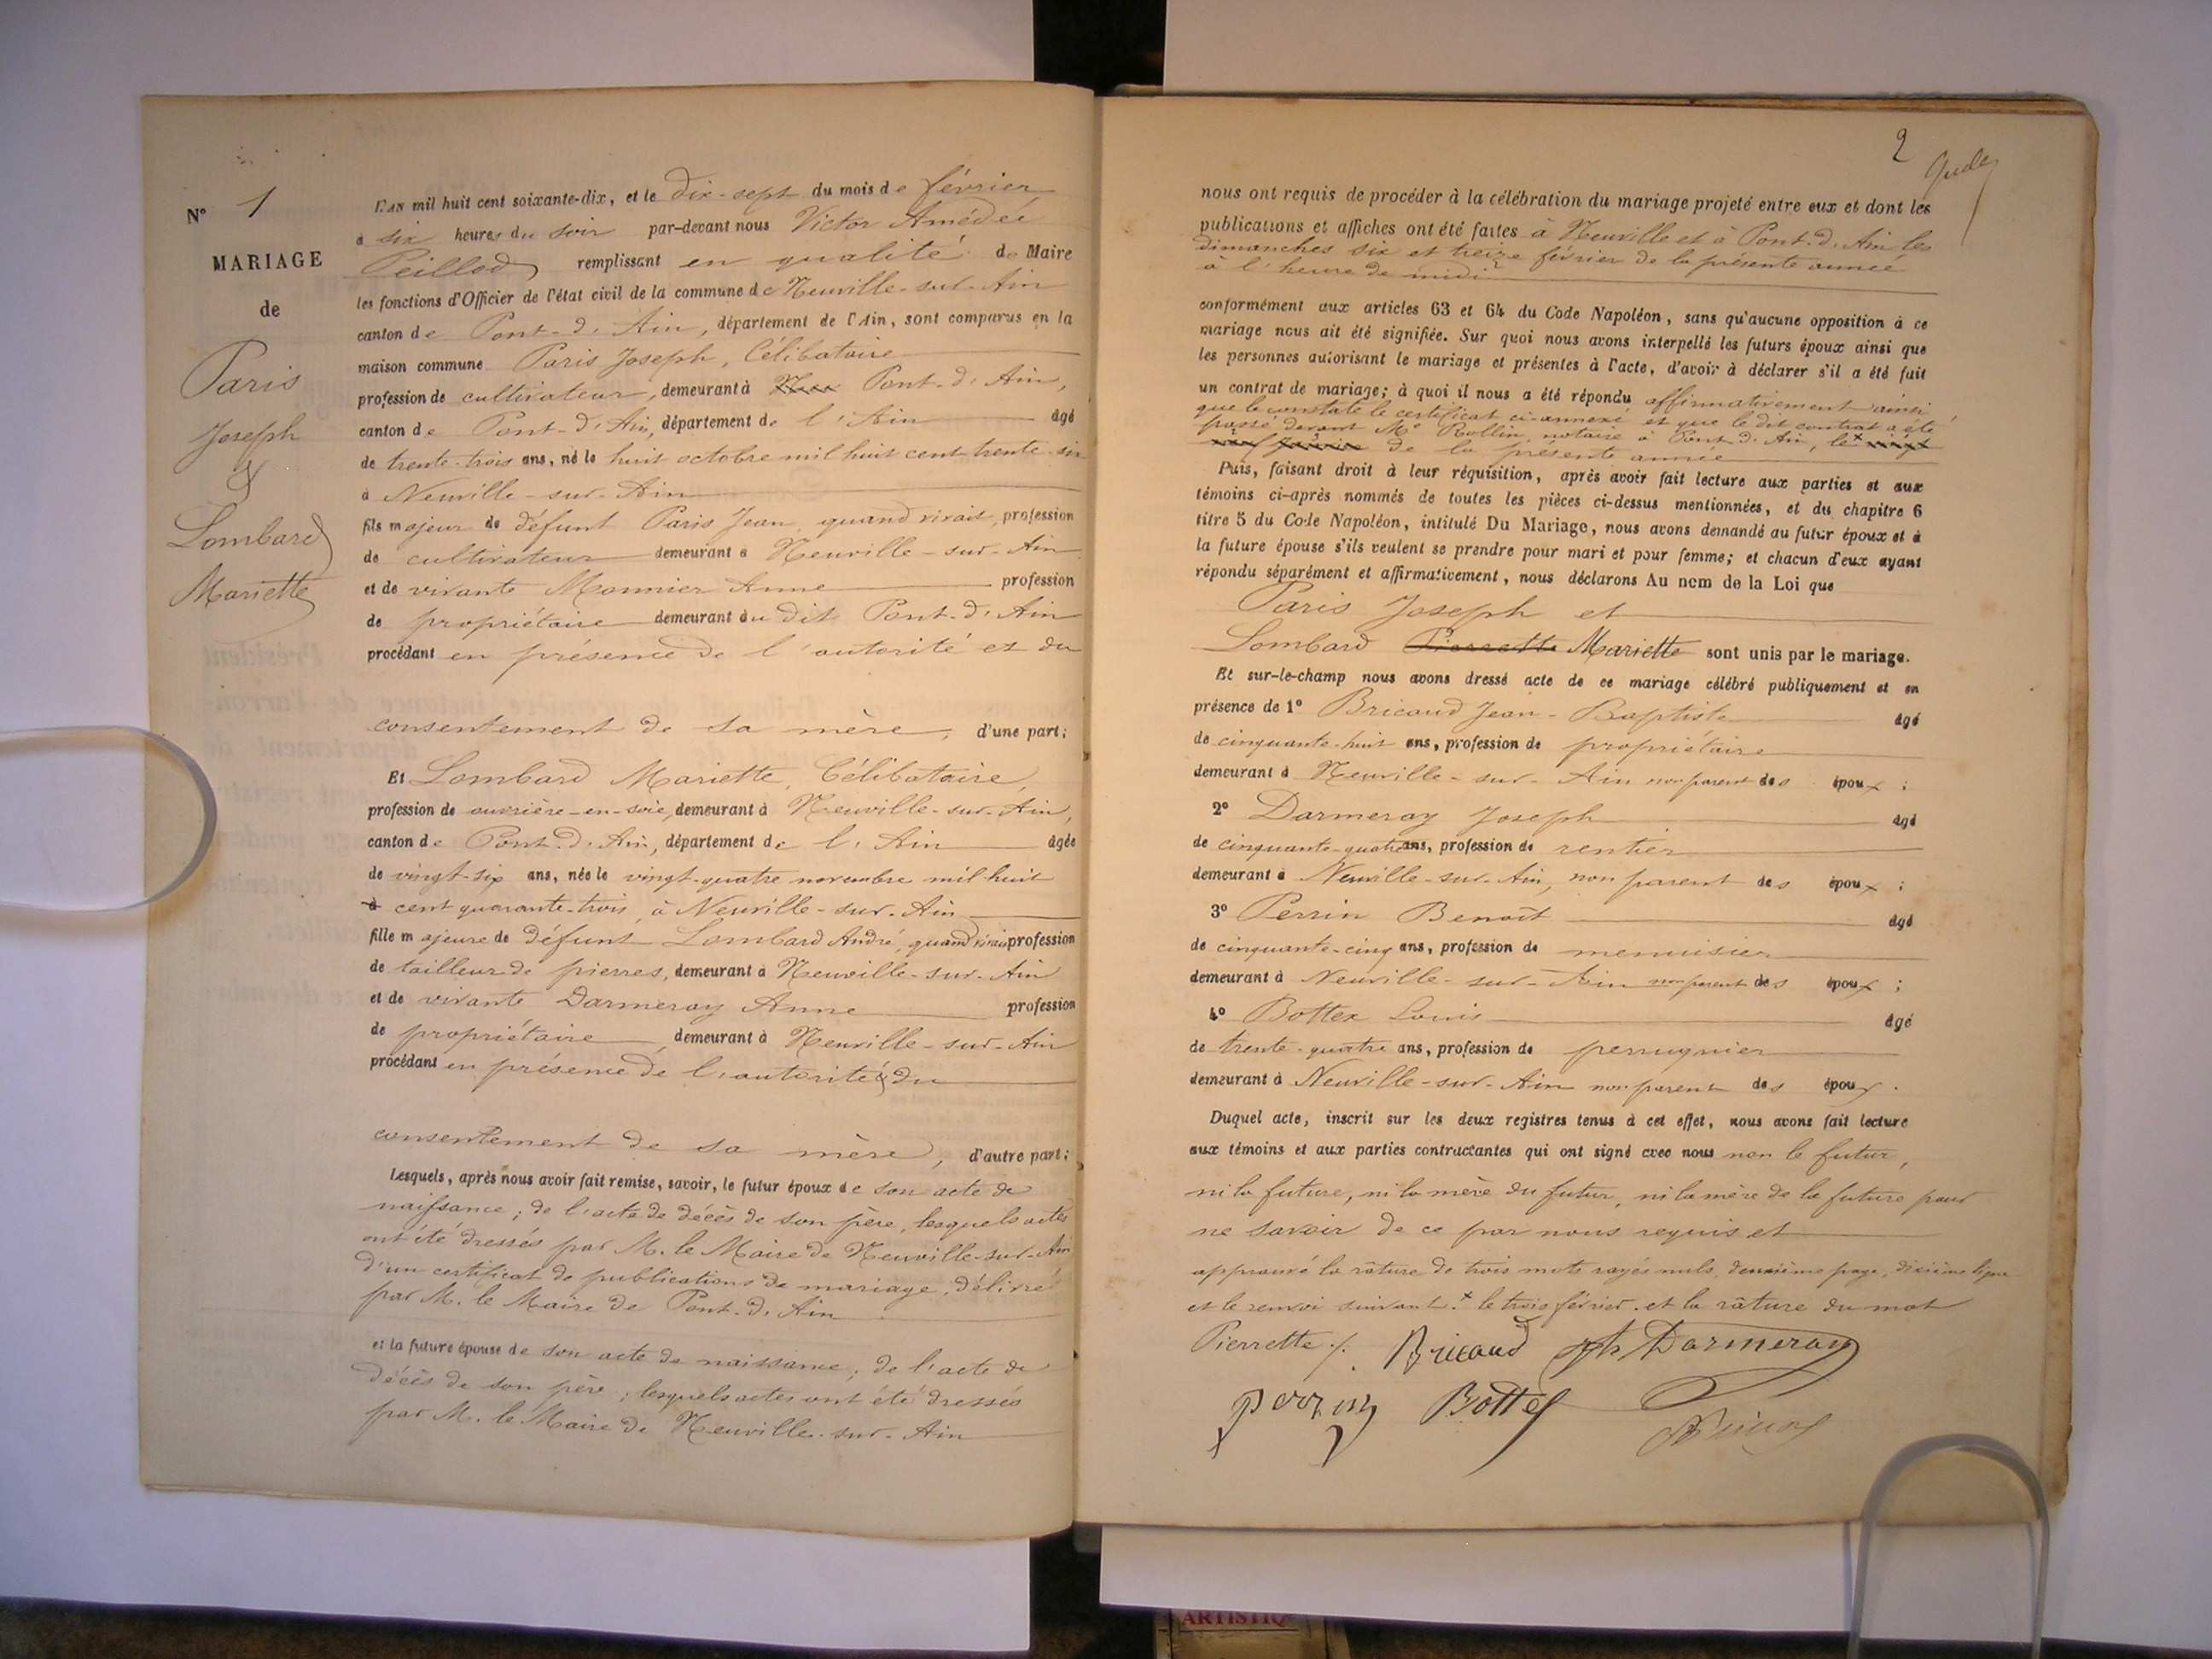 N° 1
MARIAGE
de
Paris
Joseph
&
Lombard
Mariette
L'AN mil huit cent soixante-dix, et le dix-sept du mois de février
à six heures du soir par-devant nous Victor Amédée
Peillod remplissant en qualité de Maire
les fonctions d'Officier de l'état civil de la commune de Neuville-sur-Ain
canton de Pont-d'Ain, département de l'Ain, sont comparus en la
maison commune Paris Joseph, Célibataire
profession de cultivateur, demeurant à Pont-d'Ain,
canton de Pont-d'Ain, département de l'Ain âgé
de trente-trois ans, né le huit octobre mil huit cent trente-six
à Neuville-sur-Ain
fils majeur de défunt Paris Jean, quand vivait, profession
de cultivateur demeurant à Neuville-sur-Ain
et de vivante Monnier Anne profession
de propriétaire demeurant au dit Pont-d'Ain
procédant en présence de l'autorité et du
consentement de sa mère, d'une part;
Et Lombard Mariette, Célibataire,
profession de ouvrière-en-soie, demeurant à Neuville-sur-Ain,
canton de Pont-d'Ain, département de l'Ain âgée
de vingt-six ans, née le vingt-quatre novembre mil huit
à cent quarante-trois, à Neuville-sur-Ain
fille majeure de défunt Lombard André, quand vivait profession
de tailleur de pierres, demeurant à Neuville-sur-Ain
et de vivante Darmeray Anne profession
de propriétaire, demeurant à Neuville-sur-Ain
procédant en présence de l'autorité & du
consentement de sa mère, d'autre part;
Lesquels, après nous avoir fait remise, savoir, le futur époux de son acte de
naissance; de l'acte de décès de son père, lesquels actes
ont été dressés par M. le Maire de Neuville-sur-Ain
d'un certificat de publications de mariage, délivré
par M. le Maire de Pont-d'Ain
et la future épouse de son acte de naissance; de l'acte de
décès de son père; lesquels actes ont été dressés
par M. le Maire de Neuville-sur-Ain
2
nous ont requis de procéder à la célébration du mariage projeté entre eux et dont les
publications et affiches ont été faites à Neuville et à Pont-d'Ain les
dimanches six et treize février de la présente année
à l'heure de midi
conformément aux articles 63 et 64 du Code Napoléon, sans qu'aucune opposition à ce
mariage nous ait été signifiée. Sur quoi nous avons interpellé les futurs époux ainsi que
les personnes autorisant le mariage et présentes à l'acte, d'avoir à déclarer s'il a été fait
un contrat de mariage; à quoi il nous a été répondu affirmativement ainsi
que le constate le certificat ci-annexé et que le dit contrat a été
passé devant Me Rollin, notaire à Pont-d'Ain, le x vingt
neuf janvier de la présente année
Puis, faisant droit à leur réquisition, après avoir fait lecture aux parties et aux
témoins ci-après nommés de toutes les pièces ci-dessus mentionnées, et du chapitre 6
titre 5 du Code Napoléon, intitulé Du Mariage, nous avons demandé au futur époux et à
la future épouse s'ils veulent se prendre pour mari et pour femme; et chacun d'eux ayant
répondu séparément et affirmativement, nous déclarons Au nom de la Loi que
Paris Joseph et
Lombard Pierrette Mariette sont unis par le mariage.
Et sur-le-champ nous avons dressé acte de ce mariage célébré publiquement et en
présence de 1° Bricaud Jean-Baptiste âgé
de cinquante-huit ans, profession de propriétaire
demeurant à Neuville-sur-Ain non parent des époux;
2° Darmeray Joseph âgé
de cinquante-quatre ans, profession de rentier
demeurant à Neuville-sur-Ain, non parent des époux;
3° Perrin Benoît âgé
de cinquante-cinq ans, profession de menuisier
demeurant à Neuville-sur-Ain non parent des époux;
4° Bottex Louis âgé
de trente-quatre ans, profession de perruquier
demeurant à Neuville-sur-Ain non parent des époux.
Duquel acte, inscrit sur les deux registres tenus à cet effet, nous avons fait lecture
aux témoins et aux parties contractantes qui ont signé avec nous non le futur,
ni la future, ni la mère du futur, ni la mère de la future pour
ne savoir de ce par nous requis et
approuvé la râture de trois mots rayés nuls, deuxième page, dixième ligne
et le renvoi suivant: x le trois février. et la râture du mot
Pierrette ./. Bricaud Jh Darmeray
perrin Bottex